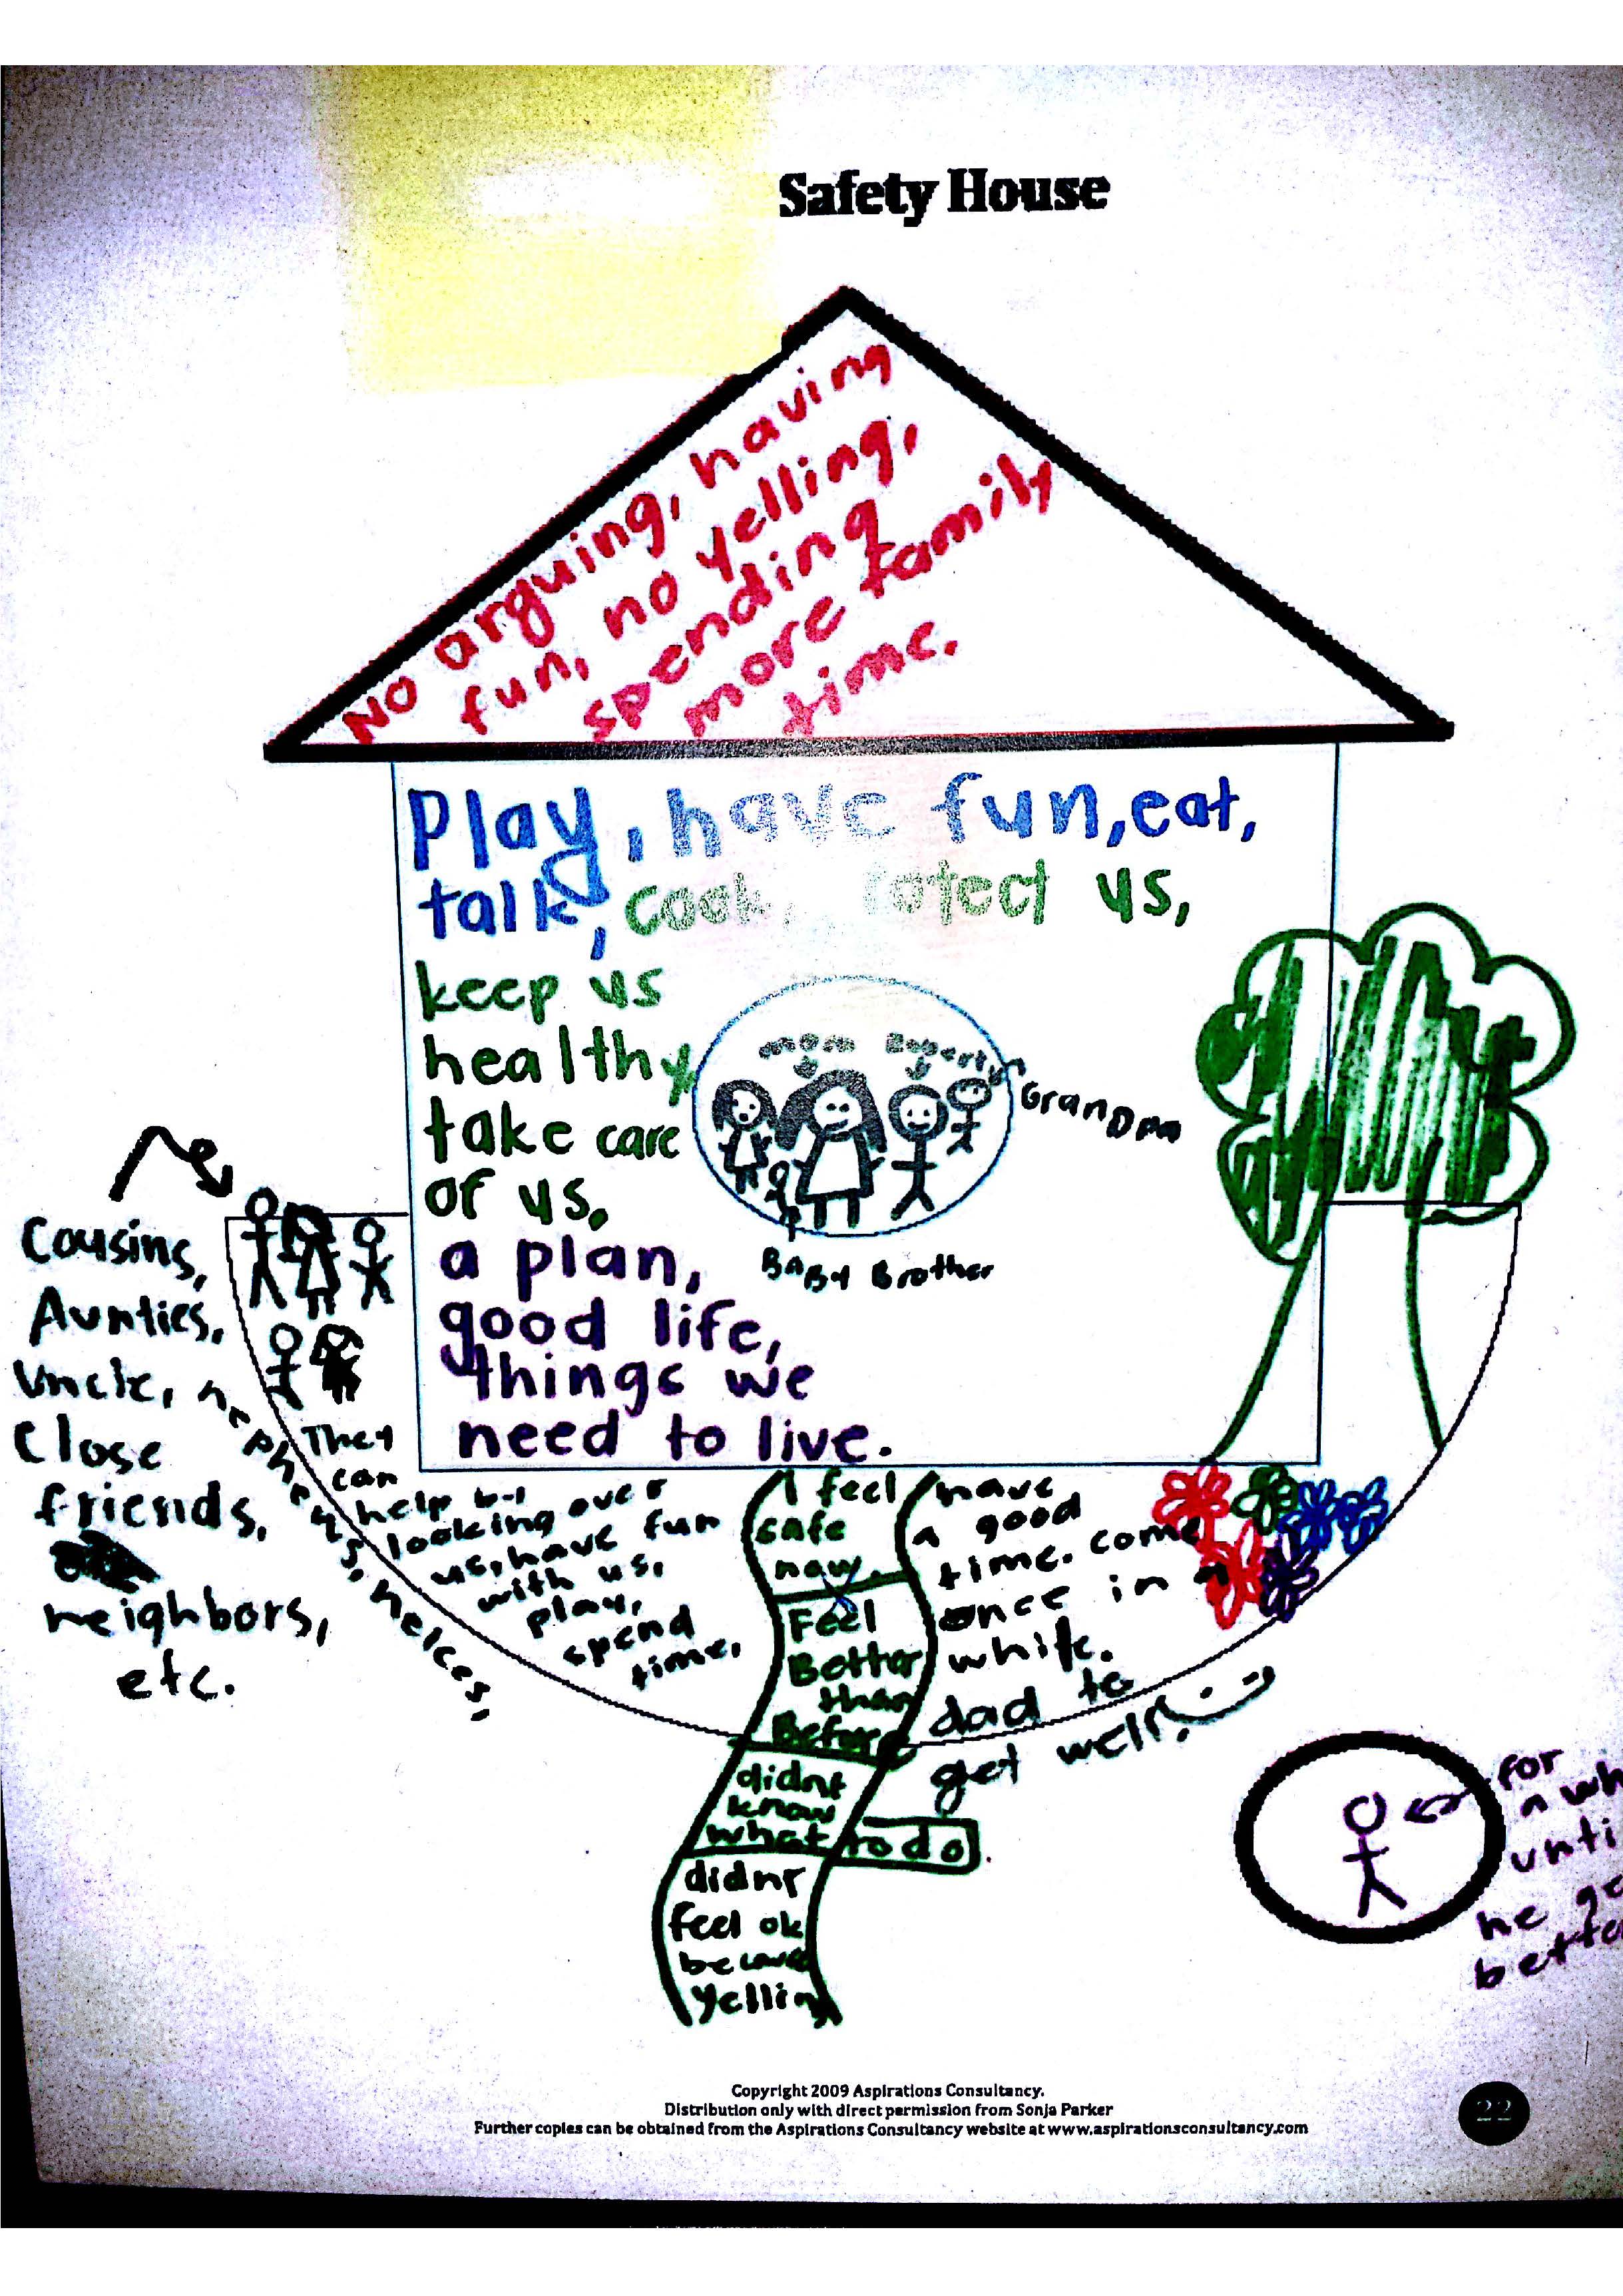 Safety House
No arguing, having
fun, no yelling,
spending
more family
time.
Play, have fun, eat,
talk, cook, rotect us,
keep us
healthy
take care
of us,
a plan,
good life,
things we
need to live.
mom
GranDpa
BaBy Brother
Cousins,
Aunties,
Uncle, nephews, neices.
Close
friends,
neighbors,
etc.
They
can
help by
looking over
us, have fun
with us,
play,
spend
time.
I feel
safe
now.
Feel
Better
than
Before
didnt
know
what to do.
didnt
feel ok
because
yelling
have
a good
time. come
once in a
while.
dad to
get well!
for
a wh
unti
he g
bette
Copyright 2009 Aspirations Consultancy.
Distribution only with direct permission from Sonja Parker
Further copies can be obtained from the Aspirations Consultancy website at www.aspirationsconsultancy.com
22